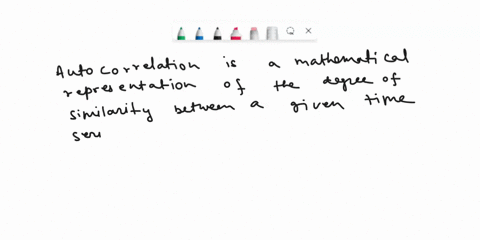 Autocorrelation is a mathematical
representation of the degree of
similarity between a given time
seri